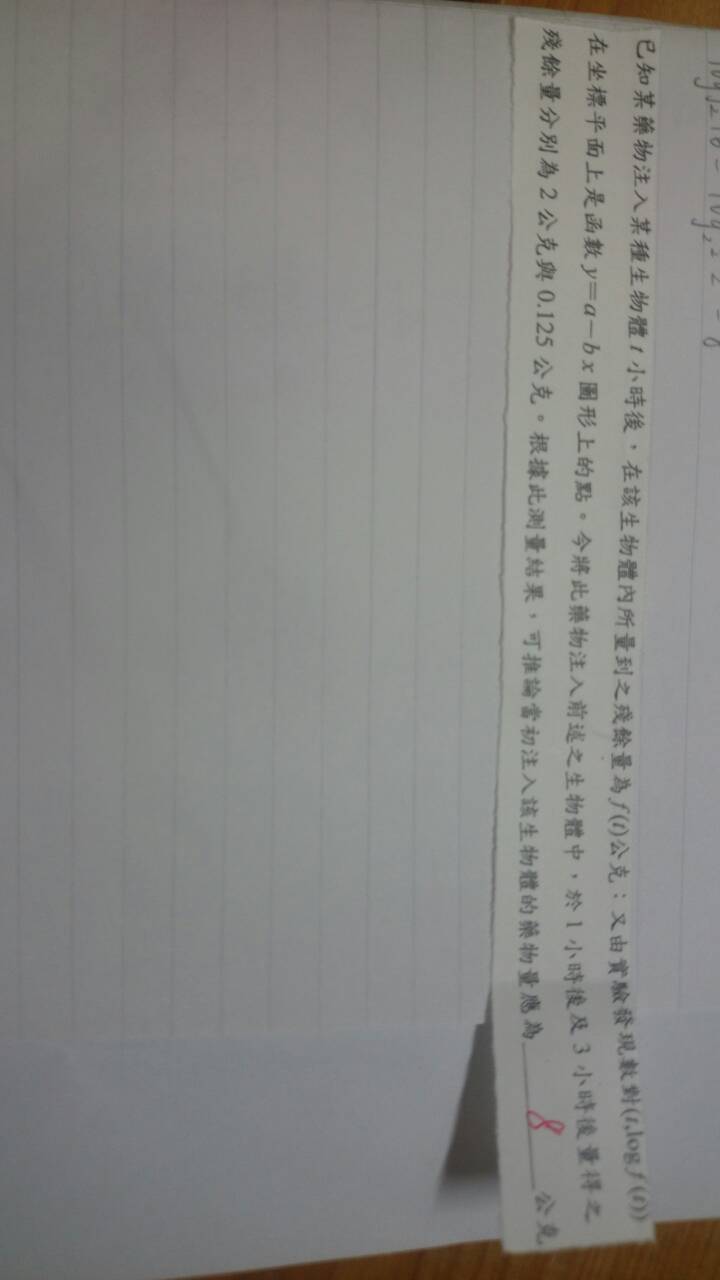 已知某藥物注入某種生物體 t 小時後，在該生物體內所量到之殘餘量為 f(t)公克；又由實驗發現數對(t,log f(t))
在坐標平面上是函數 y=a－bx 圖形上的點。今將此藥物注入前述之生物體中，於 1 小時後及 3 小時後量得之
殘餘量分別為 2 公克與 0.125 公克。根據此測量結果，可推論當初注入該生物體的藥物量應為 8 公克